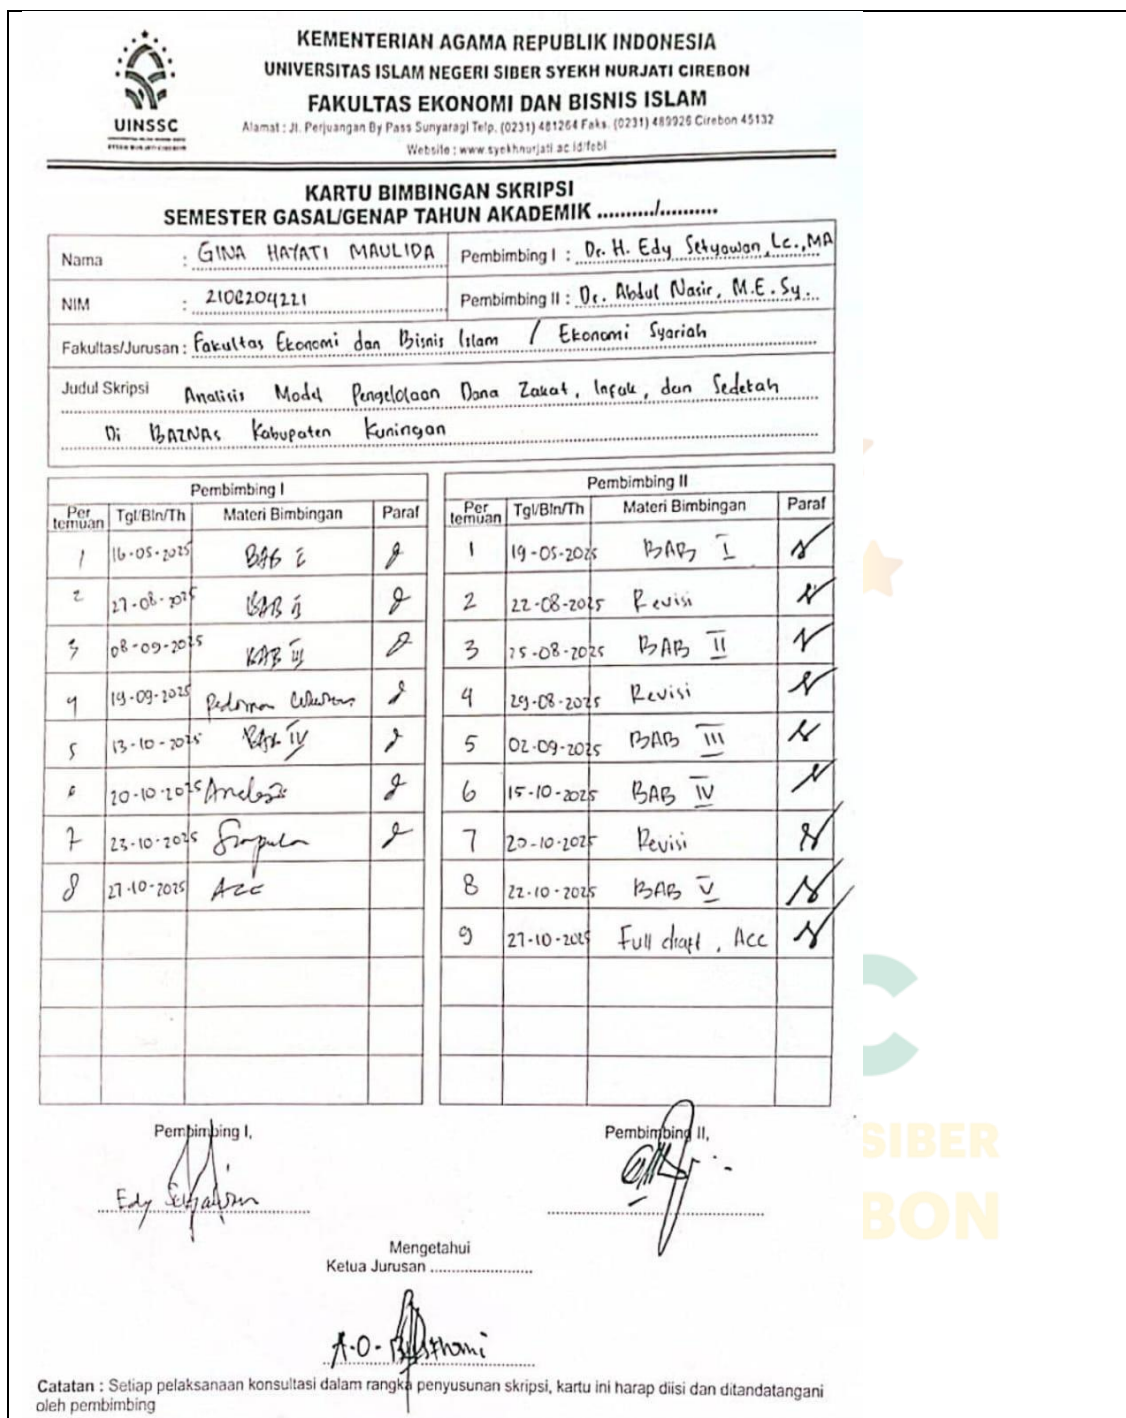 KEMENTERIAN AGAMA REPUBLIK INDONESIA
UNIVERSITAS ISLAM NEGERI SIBER SYEKH NURJATI CIREBON
FAKULTAS EKONOMI DAN BISNIS ISLAM
UINSSC
Alamat : Jl. Perjuangan By Pass Sunyaragi Telp. (0231) 481264 Faks. (0231) 489926 Cirebon 45132
Website : www.syekhnurjati.ac.id/febi
KARTU BIMBINGAN SKRIPSI
SEMESTER GASAL/GENAP TAHUN AKADEMIK ........../..........
Nama : GINA HAYATI MAULIDA Pembimbing I : Dr. H. Edy Setyawan, Lc., MA
NIM : 2108204221 Pembimbing II : Dr. Abdul Nasir, M.E.Sy.
Fakultas/Jurusan : Fakultas Ekonomi dan Bisnis Islam / Ekonomi Syariah
Judul Skripsi Analisis Model Pengelolaan Dana Zakat, Infak, dan Sedekah
Di BAZNAS Kabupaten Kuningan
Pembimbing I
Per temuan Tgl/Bln/Th Materi Bimbingan Paraf
1 16-05-2025 BAB I
2 27-08-2025 BAB II
3 08-09-2025 BAB III
4 19-09-2025 Pedoman
5 13-10-2025 BAB IV
20-10-2025
7 23-10-2025
8 27-10-2025 Acc
Pembimbing II
Per temuan Tgl/Bln/Th Materi Bimbingan Paraf
1 19-05-2025 BAB I
2 22-08-2025 Revisi
3 25-08-2025 BAB II
4 29-08-2025 Revisi
5 02-09-2025 BAB III
6 15-10-2025 BAB IV
7 20-10-2025 Revisi
8 22-10-2025 BAB V
9 27-10-2025 Full draft, Acc
Pembimbing I,
Edy Setyawan
Pembimbing II,
Mengetahui
Ketua Jurusan ........................
Catatan : Setiap pelaksanaan konsultasi dalam rangka penyusunan skripsi, kartu ini harap diisi dan ditandatangani
oleh pembimbing
SIBER
BON